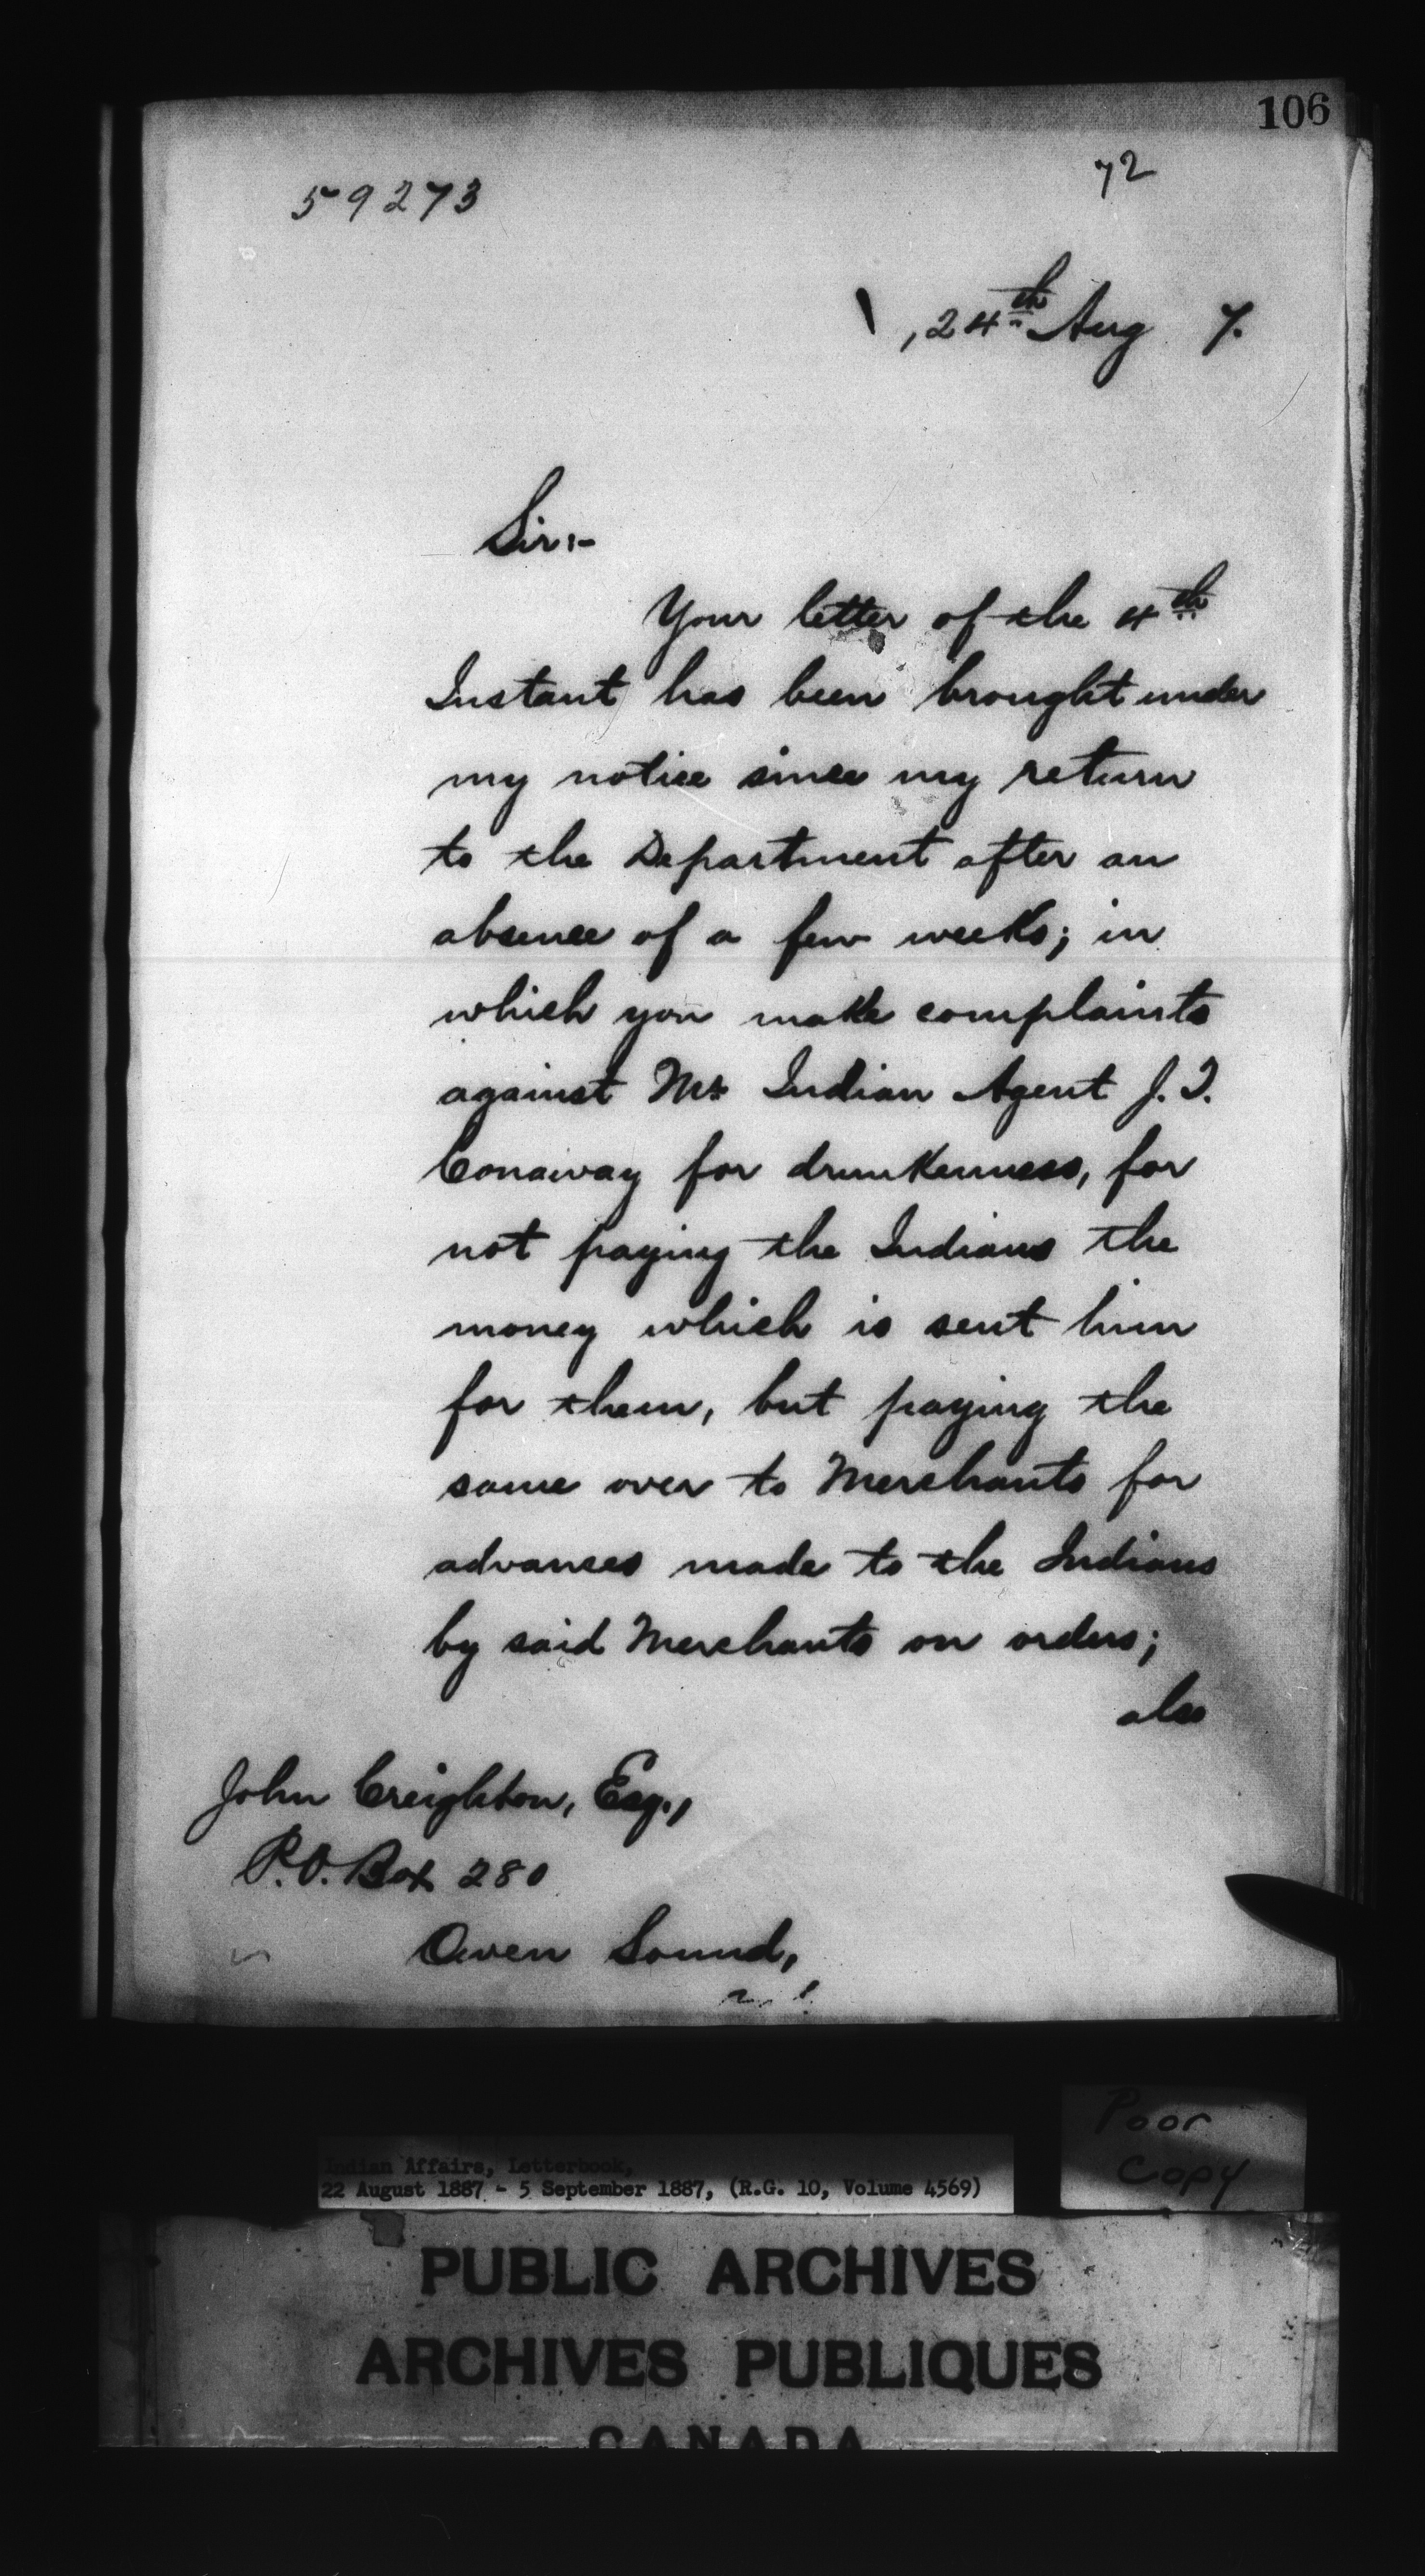 106
72
59273
, 24th Aug 7.
Sir:-
Your letter of the 4th
Instant has been brought under
my notice since my return
to the Department after an
absence of a few weeks; in
which you make complaints
against Mr Indian Agent J. T.
Conaway for drunkenness, for
not paying the Indians the
money which is sent him
for them, but paying the
same over to Merchants for
advances made to the Indians
by said Merchants on orders;
also
John Creighton, Esq.,
P.O. Box 280
Owen Sound,
Poor
Copy
Indian Affairs, Letterbook,
22 August 1887 - 5 September 1887, (R.G. 10, Volume 4569)
PUBLIC ARCHIVES
ARCHIVES PUBLIQUES
CANADA